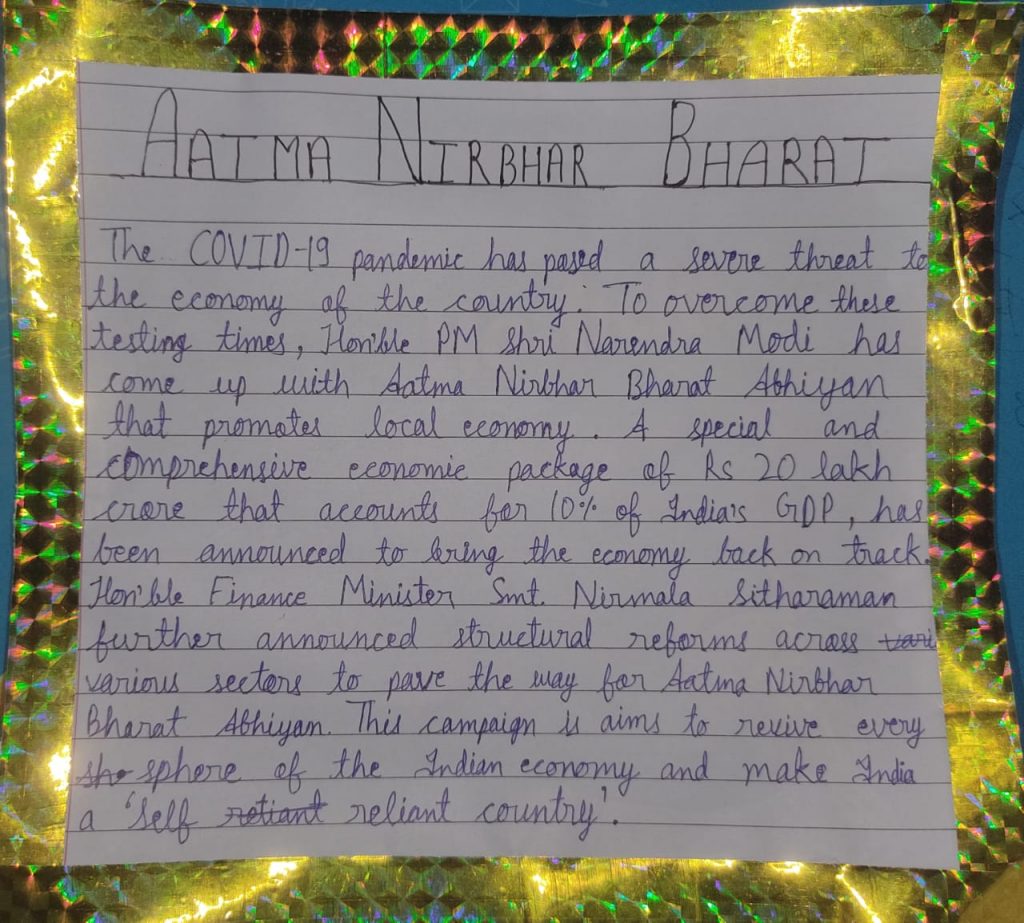 AATMA NIRBHAR BHARAT
The COVID-19 pandemic has posed a severe threat to
the economy of the country. To overcome these
testing times, Hon'ble PM Shri Narendra Modi has
come up with Aatma Nirbhar Bharat Abhiyan
that promotes local economy. A special and
comprehensive economic package of Rs 20 lakh
crore that accounts for 10% of India's GDP, has
been announced to bring the economy back on track.
Hon'ble Finance Minister Smt. Nirmala Sitharaman
further announced structural reforms across vari
various sectors to pave the way for Aatma Nirbhar
Bharat Abhiyan. This campaign is aims to revive every
sho sphere of the Indian economy and make India
a 'Self retiant reliant country'.